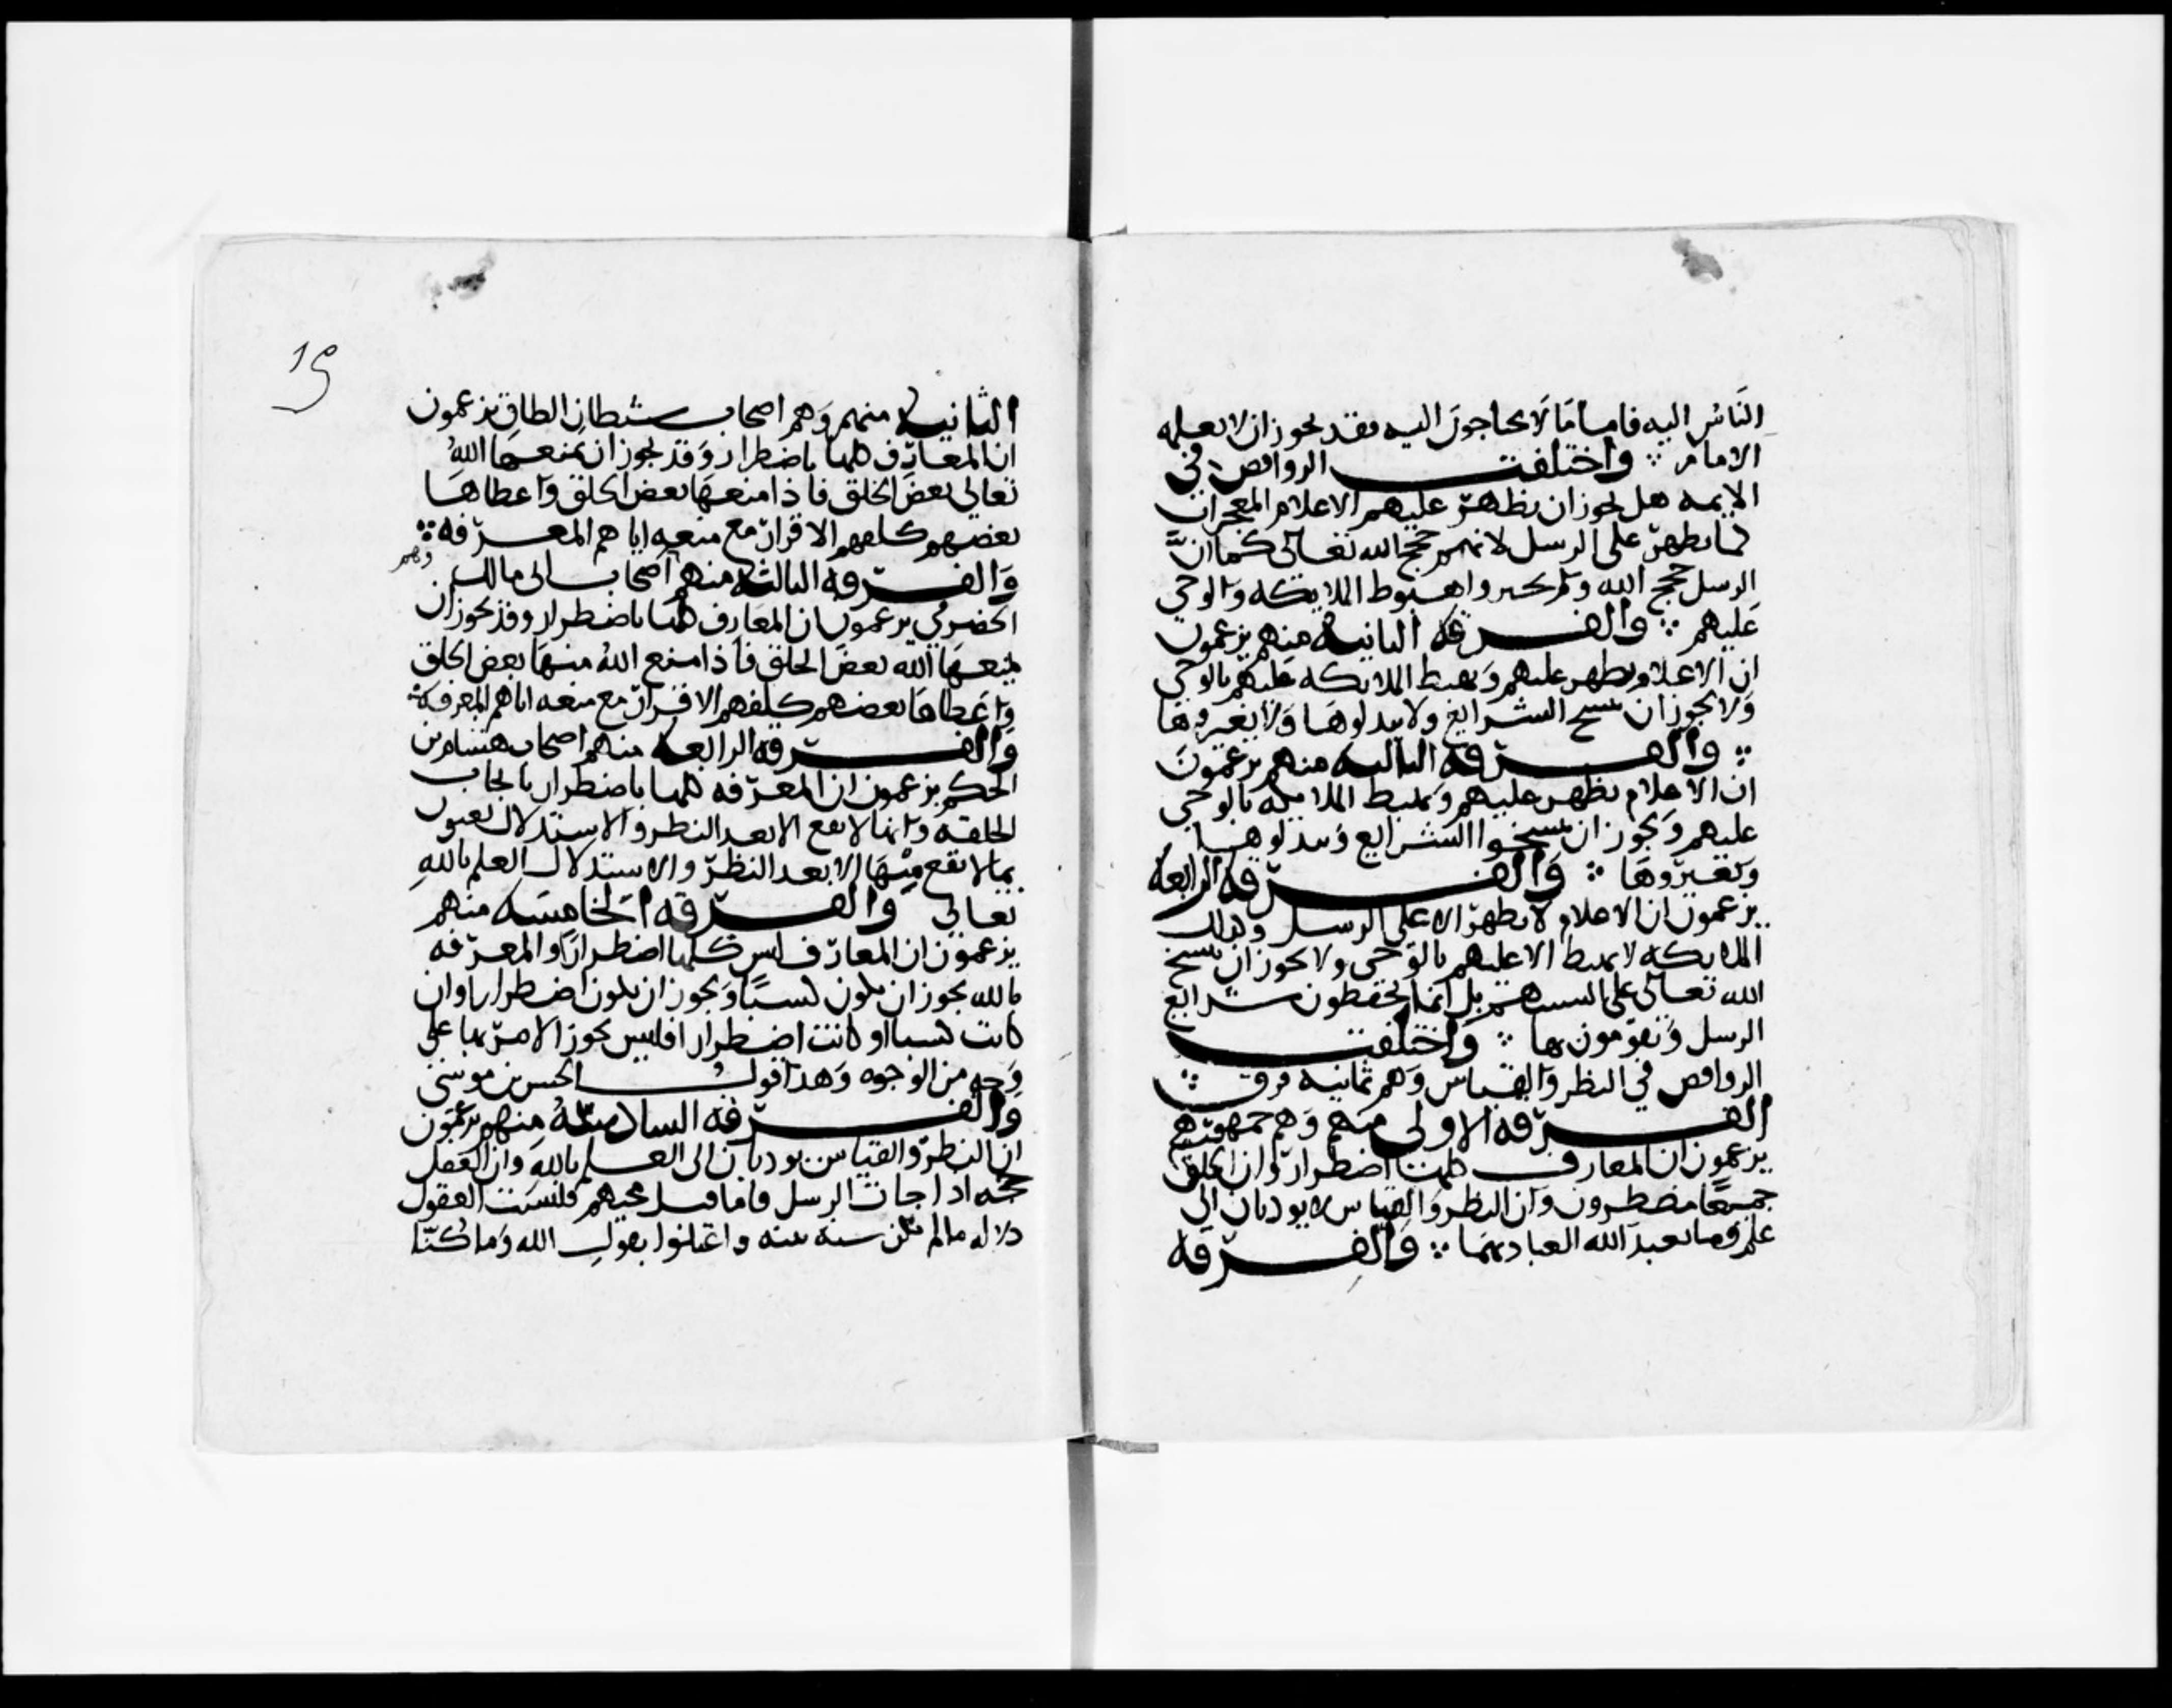 الناس اليه فاما ما لا يحتاجون اليه فقد يجوز ان لا يعلمه
الامام ∴ واختلفت الروافض في
الايمه هل يجوز ان يظهر عليهم الاعلام المعجزات
كما يظهر على الرسل لانهم حجج الله تعالى كما ان
الرسل حجج الله ولم يجيزوا هبوط الملايكه والوحي
عليهم ∴ والفرقه الثانيه منهم يزعمون
ان الاعلام يظهر عليهم ويهبط الملايكه عليهم بالوحي
ولا يجوز ان ينسخ الشرايع ولا يبدلوها ولا يغيروها
∴ والفرقه الثالثه منهم يزعمون
ان الاعلام تظهر عليهم ويهبط الملايكه بالوحي
عليهم ويجوز ان ينسخوا الشرايع ويبدلوها
ويغيروها ∴ والفرقه الرابعه
يزعمون ان الاعلام لا يظهر الا على الرسل وكذلك
الملايكه لا يهبط الا عليهم بالوحي ولا يجوز ان ينسخ
الله تعالى على السنتهم بل انما يحفظون شرايع
الرسل ويقومون بها ∴ واختلفت
الروافض في النظر والقياس وهم ثمانيه فرق ∴
الفرقه الاولى منهم وهم جمهورهم
يزعمون ان المعارف كلها اضطرار وان الخلق
جميعا مضطرون وان النظر والقياس لا يوديان الى
علم وما تعبد الله العباد بهما ∴ والفرقه
19
الثانيه منهم وهم اصحاب شيطان الطاق يزعمون
ان المعارف كلها باضطرار وقد يجوز ان يمنعها الله
تعالى بعض الخلق فاذا منعها بعض الخلق واعطاها
بعضهم كلفهم الاقرار مع منعه اياهم المعرفه ∴
والفرقه الثالثه منهم اصحاب ابي مالك وهم
الحضرمي يزعمون ان المعارف كلها باضطرار وقد يجوز ان
يمنعها الله بعض الخلق فاذا منع الله منها بعض الخلق
واعطاها بعضهم كلفهم الاقرار مع منعه اياهم المعرفه ∴
والفرقه الرابعه منهم اصحاب هشام بن
الحكم يزعمون ان المعرفه كلها باضطرار بايجاب
الخلقه وانها لا تقع الا بعد النظر والاستدلال يعنون
بما لا تقع منها الا بعد النظر والاستدلال العلم بالله
تعالى والفرقه الخامسه منهم
يزعمون ان المعارف ليس كلها اضطرارا والمعرفه
بالله يجوز ان يكون كسبا ويجوز ان يكون اضطرارا وان
كانت كسبا او كانت اضطرارا فليس يجوز الامر بها على
وجه من الوجوه وهذا قول الحسن بن موسى
والفرقه السادسه منهم يزعمون
ان النظر والقياس يوديان الى العلم بالله وان العقل
حجه اذا جات الرسل فاما قبل مجيهم فليست العقول
دلاله ما لم يكن سنة بينه واعتلوا بقول الله وما كنا